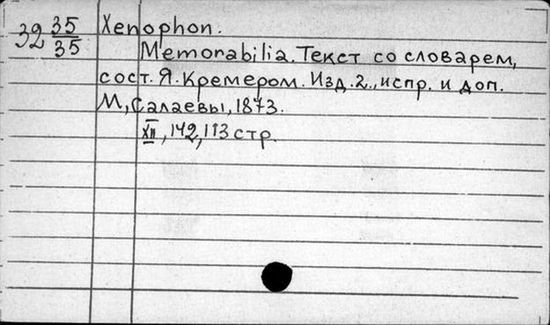 32 35/35 Xenophon.
Memorabilia. Текст со словарем,
сост. Я. Кремером. Изд. 2., испр. и доп.
М, Салаевы, 1873.
XII, 142, 113 стр.